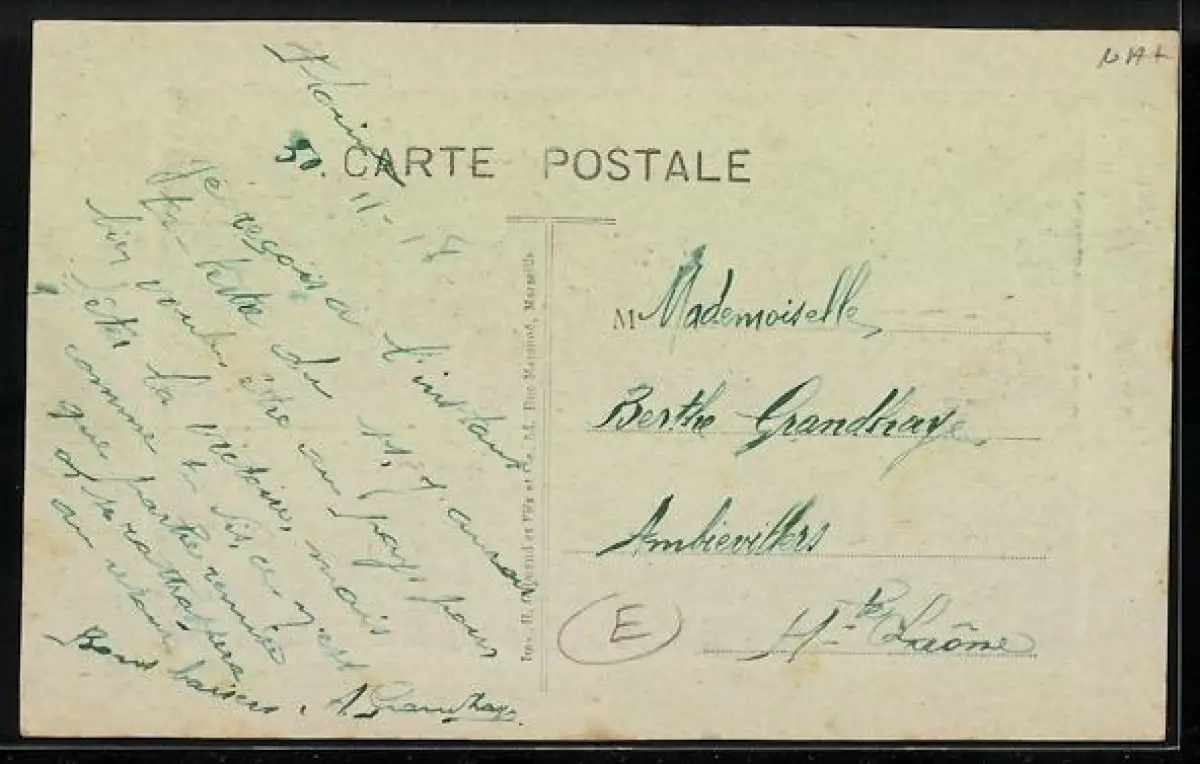 CARTE POSTALE
30. 11-18
Je reçois à l'instant
ta lettre du 15. J'aurais
bien voulu être au pays pour
fêter la victoire, mais
comme tu dis, ce n'est
que partie remise
on se rattrapera
au retour
Bons baisers. A Grandhaye.
M
Mademoiselle
Berthe Grandhaye
Ambievillers
Hte Saône
E